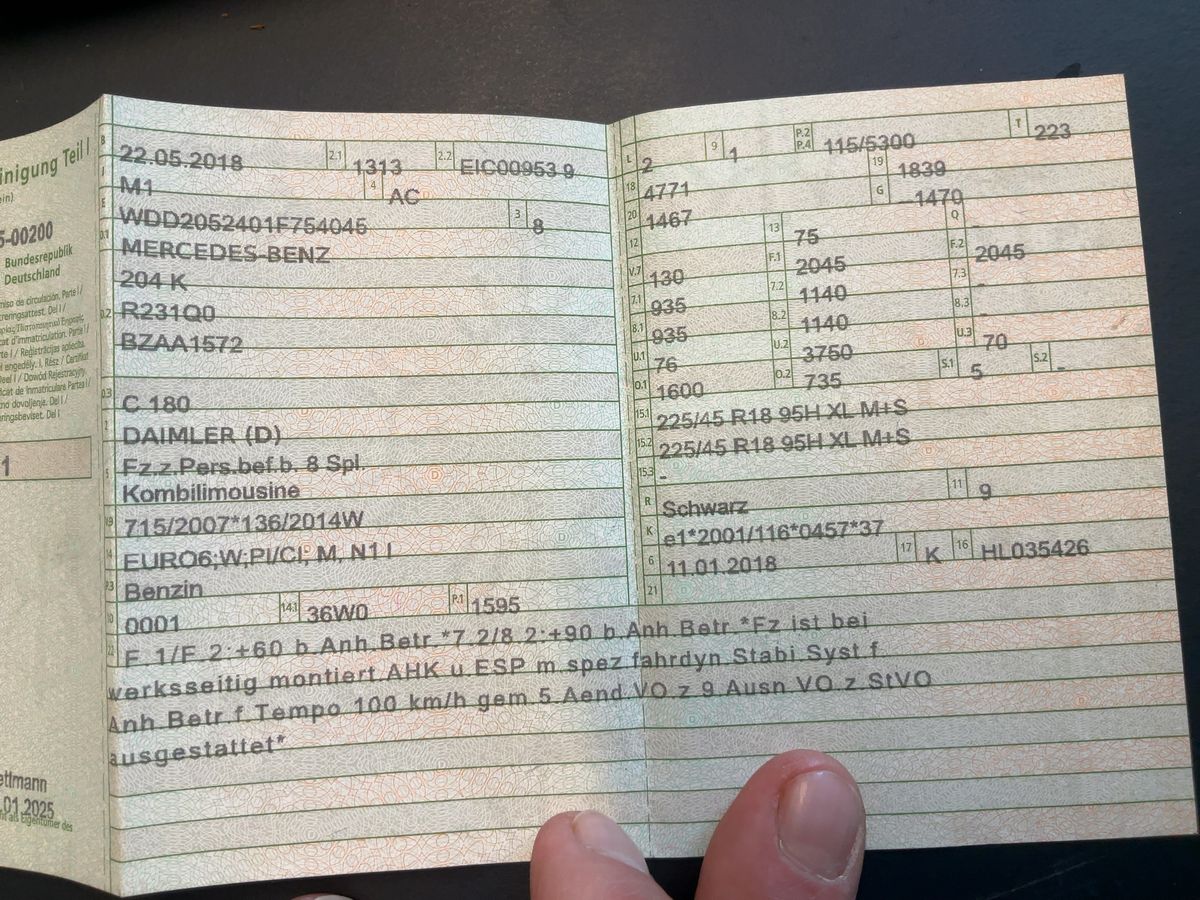 inigung Teil I
ein)
5-00200
Bundesrepublik
Deutschland
miso de circulación. Parte I /
1
ettmann
.01.2025
B 22.05.2018 2.1 1313 2.2 EIC00953 9
J M1 4 AC
E WDD2052401F754045 3 8
D.1 MERCEDES-BENZ
204 K
D.2 R231Q0
BZAA1572
D.3 C 180
2 DAIMLER (D)
Fz.z.Pers.bef.b. 8 Spl.
5 Kombilimousine
V.9 715/2007*136/2014W
14 EURO6;W;PI/CI; M, N1 I
P.3 Benzin
10 0001 14.1 36W0 P.1 1595
L 2 9 1 P.2 P.4 115/5300 T 223
18 4771 19 1839
20 1467 G 1470
12 - 13 75 Q -
V.7 130 F.1 2045 F.2 2045
7.1 935 7.2 1140 7.3 -
8.1 935 8.2 1140 8.3 -
U.1 76 U.2 3750 U.3 70
O.1 1600 O.2 735 S.1 5 S.2 -
15.1 225/45 R18 95H XL M+S
15.2 225/45 R18 95H XL M+S
15.3 -
R Schwarz 11 9
K e1*2001/116*0457*37
6 11.01.2018 17 K 16 HL035426
21
22 F.1/F.2:+60 b.Anh.Betr.*7.2/8.2:+90 b.Anh.Betr.*Fz ist bei
werksseitig montiert.AHK u.ESP m.spez.fahrdyn.Stabi.Syst.f.
Anh.Betr.f.Tempo 100 km/h gem.5.Aend.VO.z.9.Ausn.VO.z.StVO
ausgestattet*